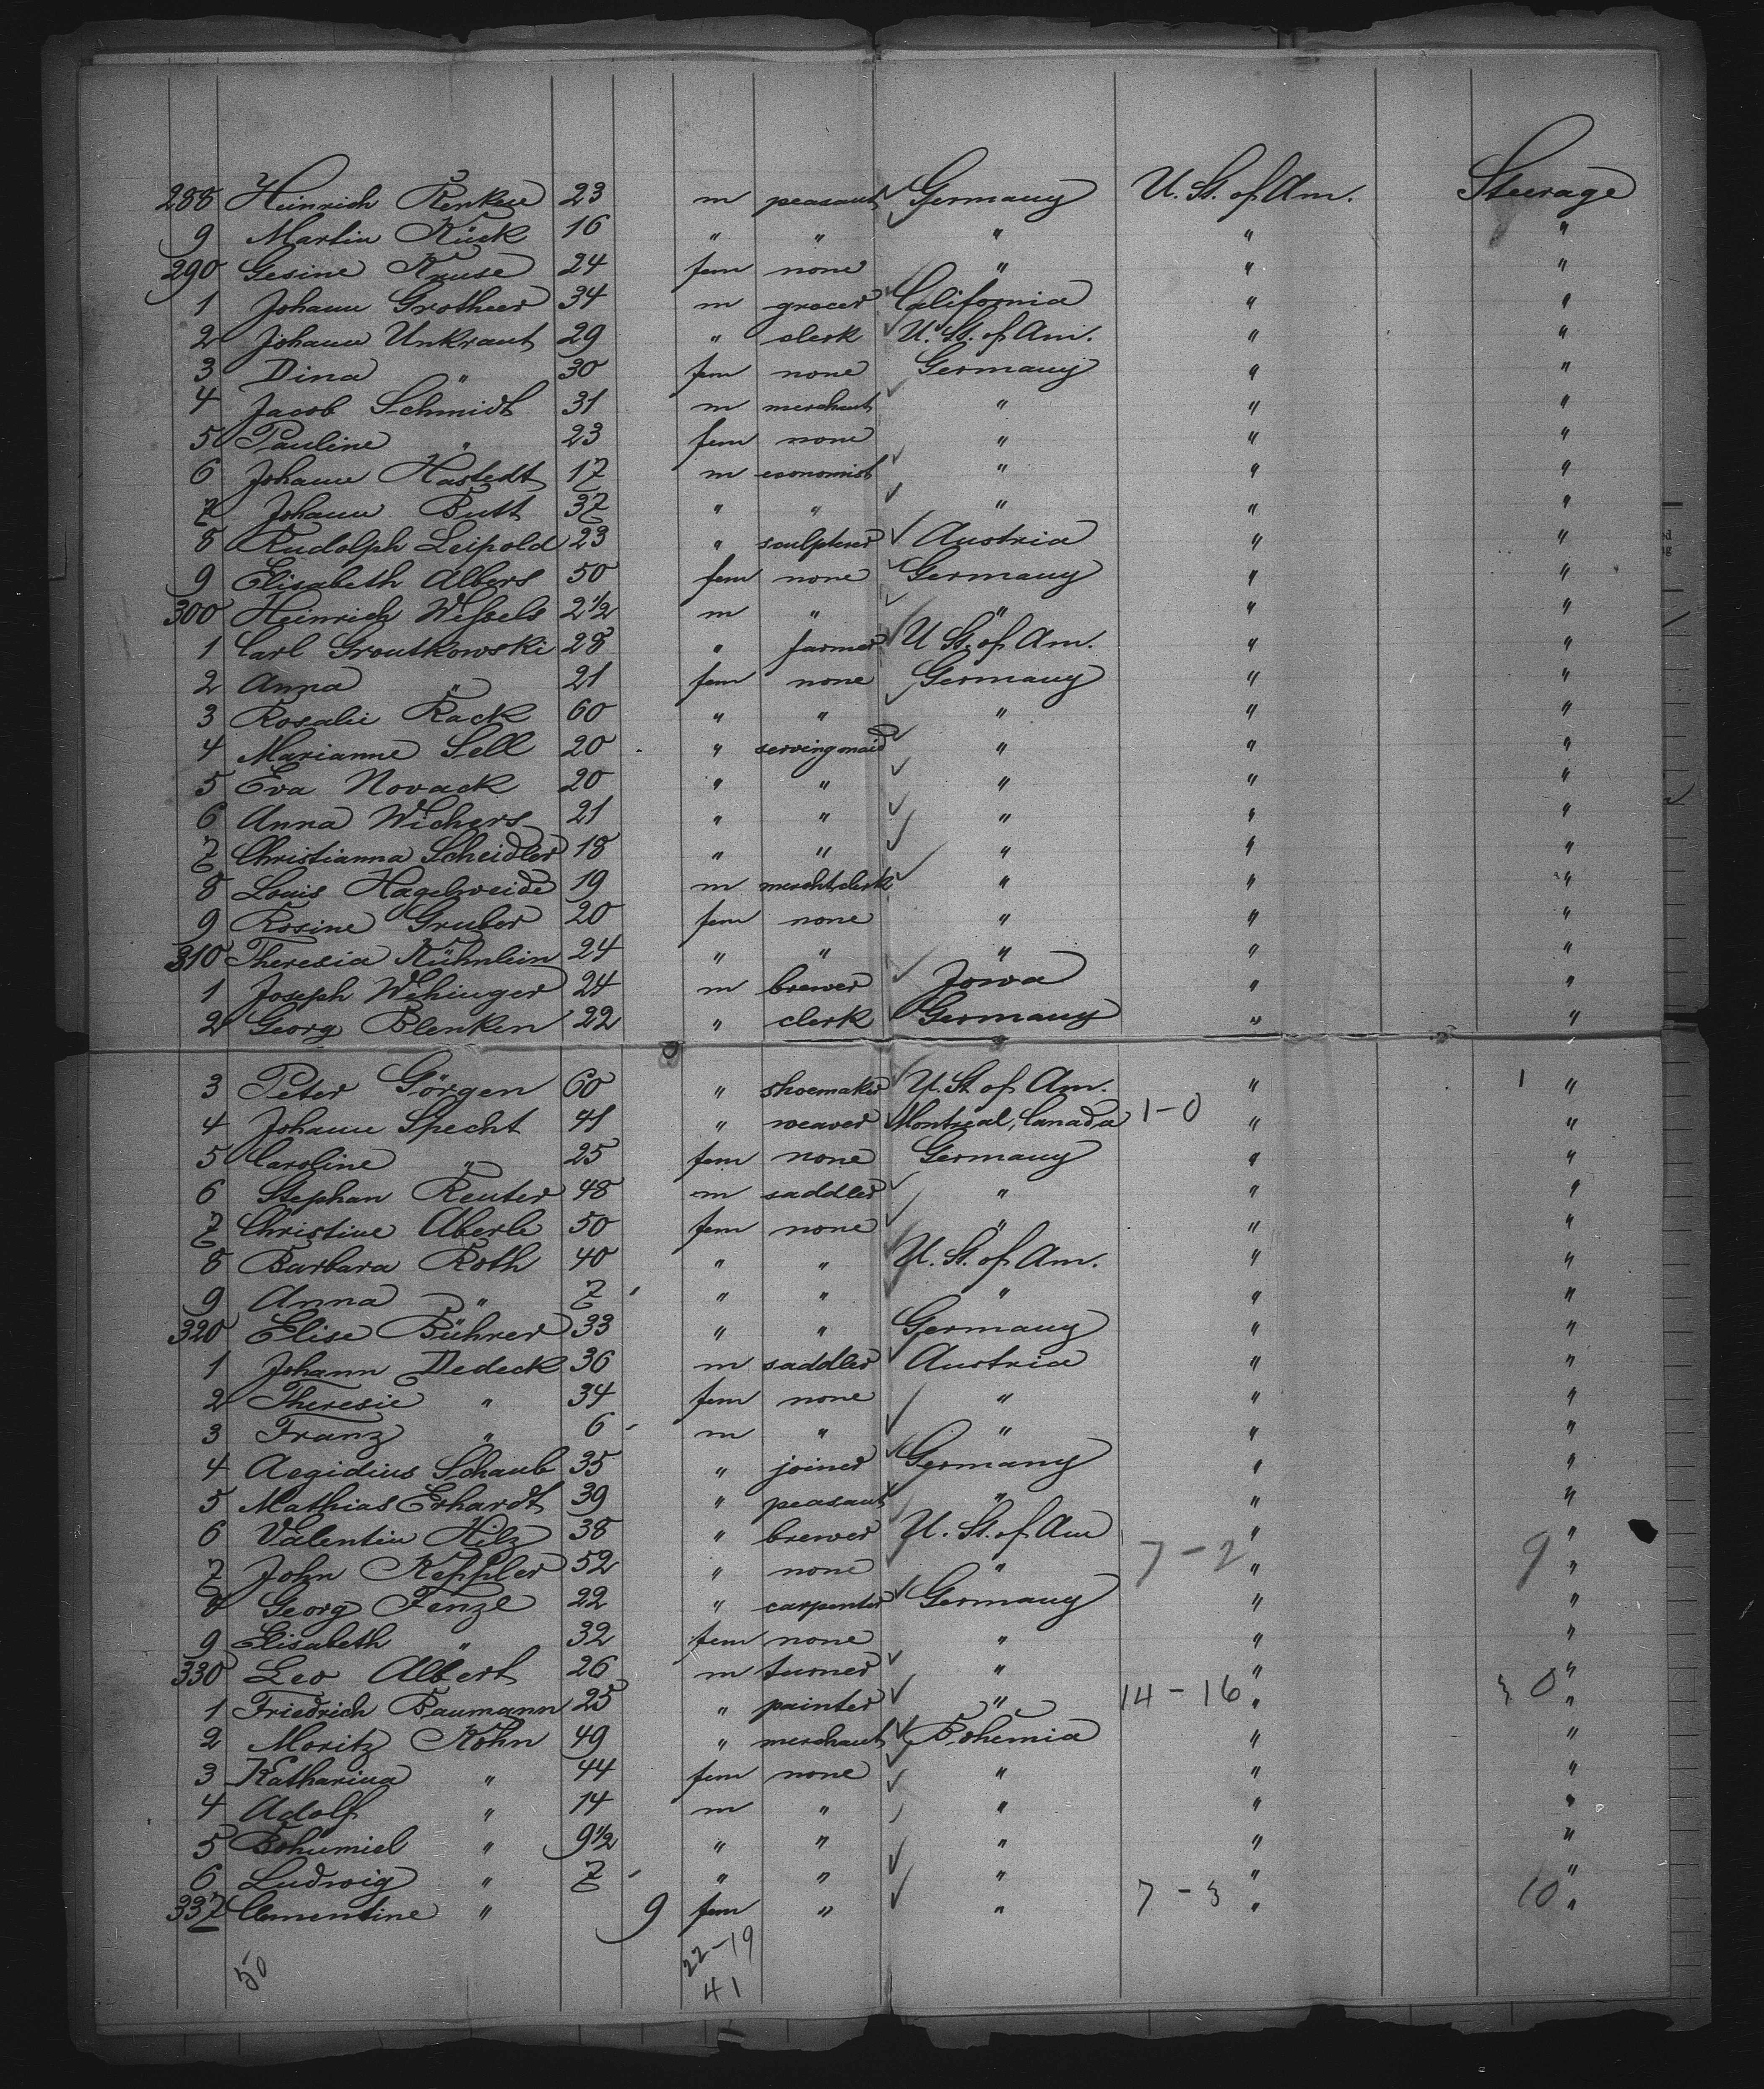 288 Heinrich Renken 23 m peasant Germany U. St. of Am. Steerage
9 Martin Kück 16 " " " " "
290 Gesine Kruse 24 fem none " " "
1 Johann Grotheer 34 m grocer California " "
2 Johann Unkraut 29 " clerk U. St. of Am. " "
3 Dina " 30 fem none Germany " "
4 Jacob Schmidt 31 m merchant " " "
5 Pauline " 23 fem none " " "
6 Johann Hastedt 17 m economist " " "
7 Johann Butt 37 " " " " "
8 Rudolph Leipold 23 " sculpterer Austria " "
9 Elisabeth Albers 50 fem none Germany " "
300 Heinrich Weſsels 2½ m " " " "
1 Carl Groutkowski 28 " farmer U St. of Am. " "
2 Anna " 21 fem none Germany " "
3 Rosalie Rack 60 " " " " "
4 Marianne Sell 20 " serving maid " " "
5 Eva Novack 20 " " " " "
6 Anna Wichers 21 " " " " "
7 Christianna Scheidler 18 " " " " "
8 Louis Hagelweide 19 m mercht clerk " " "
9 Rosine Gruber 20 fem none " " "
310 Theresia Kühnlein 24 " " " " "
1 Joseph Wehinger 24 m brewer Jowa " "
2 Georg Blenken 22 " clerk Germany " "
3 Peter Görgen 60 " shoemaker U. St of Am. " 1 "
4 Johann Specht 41 " weaver Montreal, Canada 1-0 " "
5 Caroline " 25 fem none Germany " "
6 Stephan Reuter 48 m saddler " " "
7 Christine Aberle 50 fem none " " "
8 Barbara Roth 40 " " U. St. of Am. " "
9 Anna " 7 " " " " "
320 Elise Bührer 33 " " Germany " "
1 Johann Dedeck 36 m saddler Austria " "
2 Theresie " 34 fem none " " "
3 Franz " 6 m " " " "
4 Aegidius Schaub 35 " joiner Germany " "
5 Mathias Erhardt 39 " peasant " " "
6 Valentin Hilz 38 " brewer U. St. of Am " "
7 John Keppler 52 " none " 7-2 " 9 "
8 Georg Fenzl 22 " carpenter Germany " "
9 Elisabeth " 32 fem none " " "
330 Leo Albert 26 m turner " " "
1 Friedrich Baumann 25 " painter " 14-16 " 30 "
2 Moritz Kohn 49 " merchant Bohemia " "
3 Katharina " 44 fem none " " "
4 Adolf " 14 m " " " "
5 Bohumiel " 9½ " " " " "
6 Ludwig " 7 " " " " "
337 Clementine " 9 fem " " 7-3 " 10 "
50 22-19
41